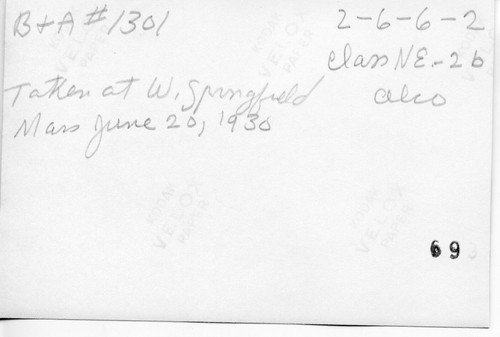 B+A #1301
2-6-6-2
Class NE-2b
also
Taken at W. Springfield
Mass June 20, 1930
KODAK
VELOX
PAPER
KODAK
VELOX
PAPER
KODAK
VELOX
PAPER
69